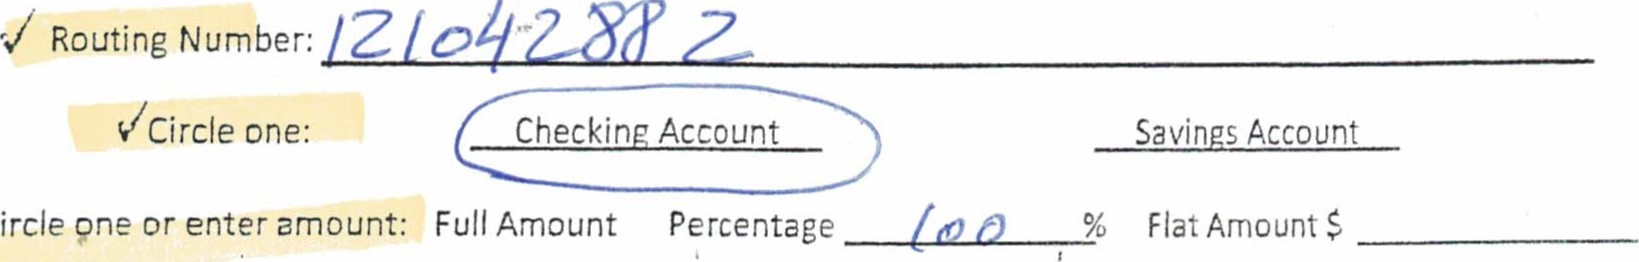 ✓ Routing Number: 121042882
✓ Circle one: Checking Account Savings Account
ircle one or enter amount: Full Amount Percentage 100 % Flat Amount $